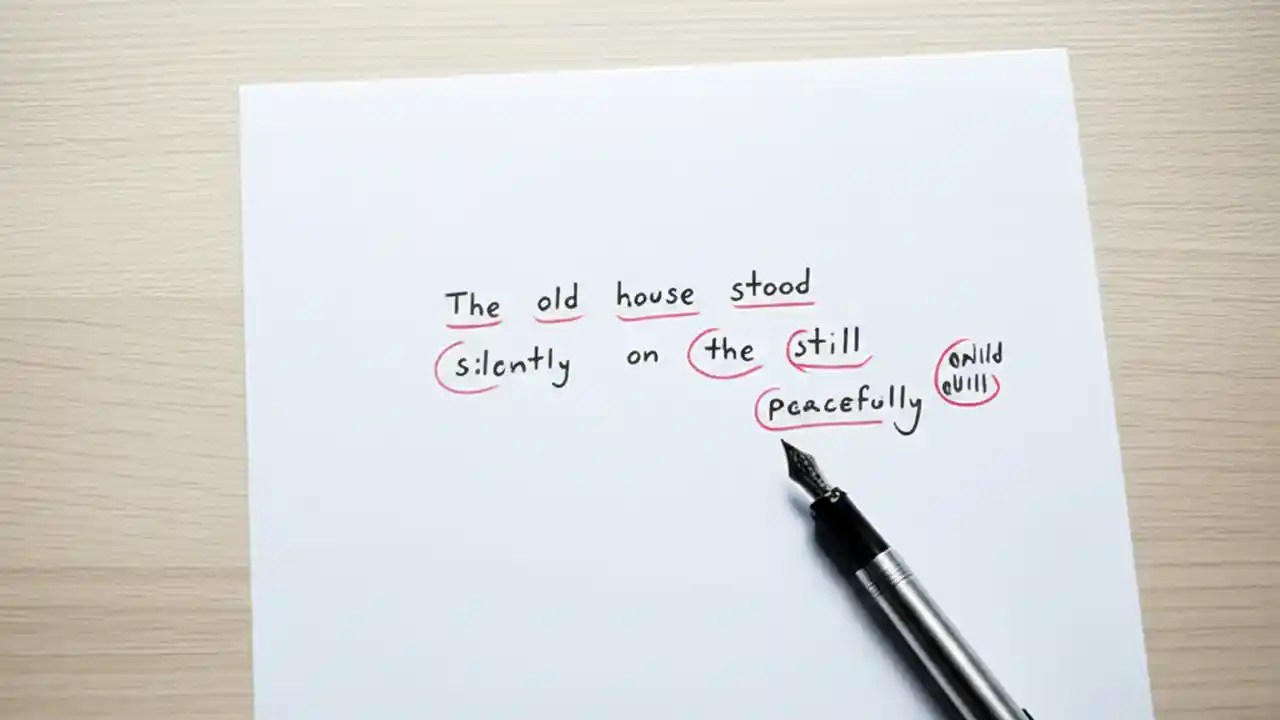 The old house stood
silently on the still
peacefully